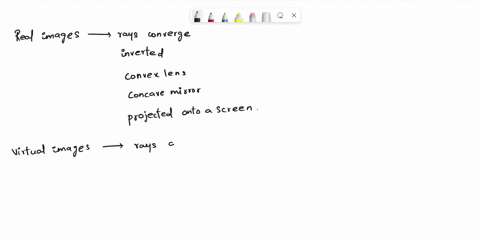 Real images → rays converge
inverted
convex lens
concave mirror
projected onto a screen.
Virtual images → rays c